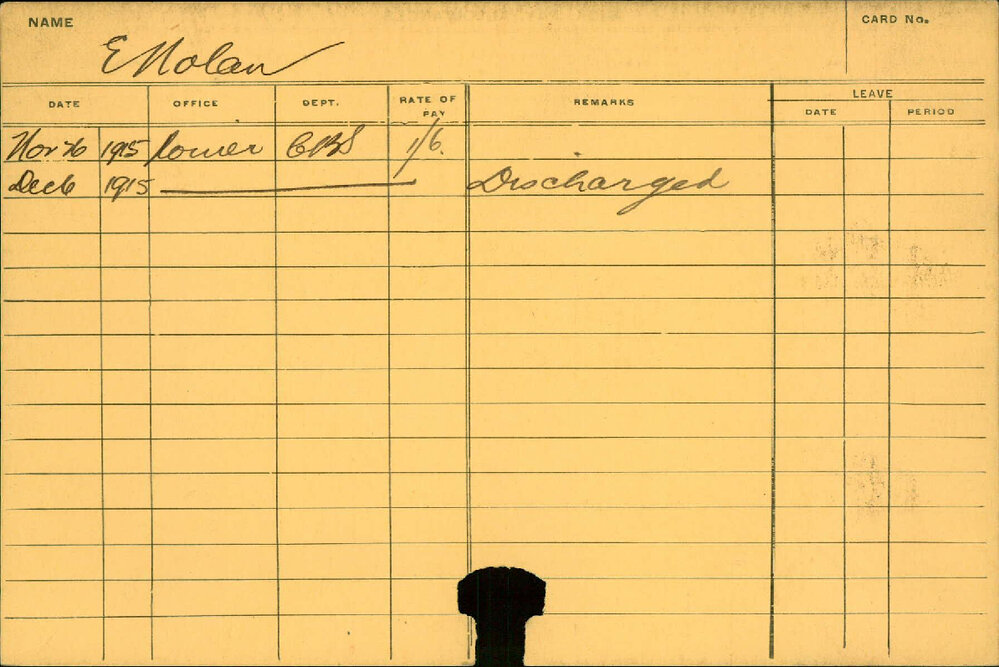 NAME CARD No.
E Nolan
DATE OFFICE DEPT. RATE OF PAY REMARKS LEAVE
DATE PERIOD
Nov 26 1915 1/6.
Dec 6 1915 Discharged